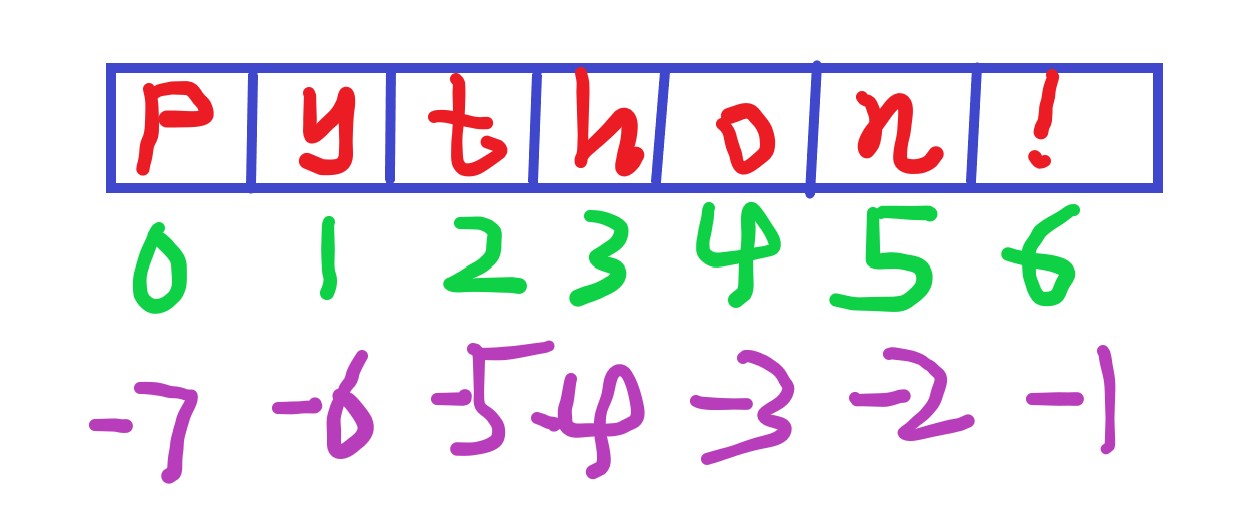 Python!
0 1 2 3 4 5 6
-7 -6 -5 -4 -3 -2 -1